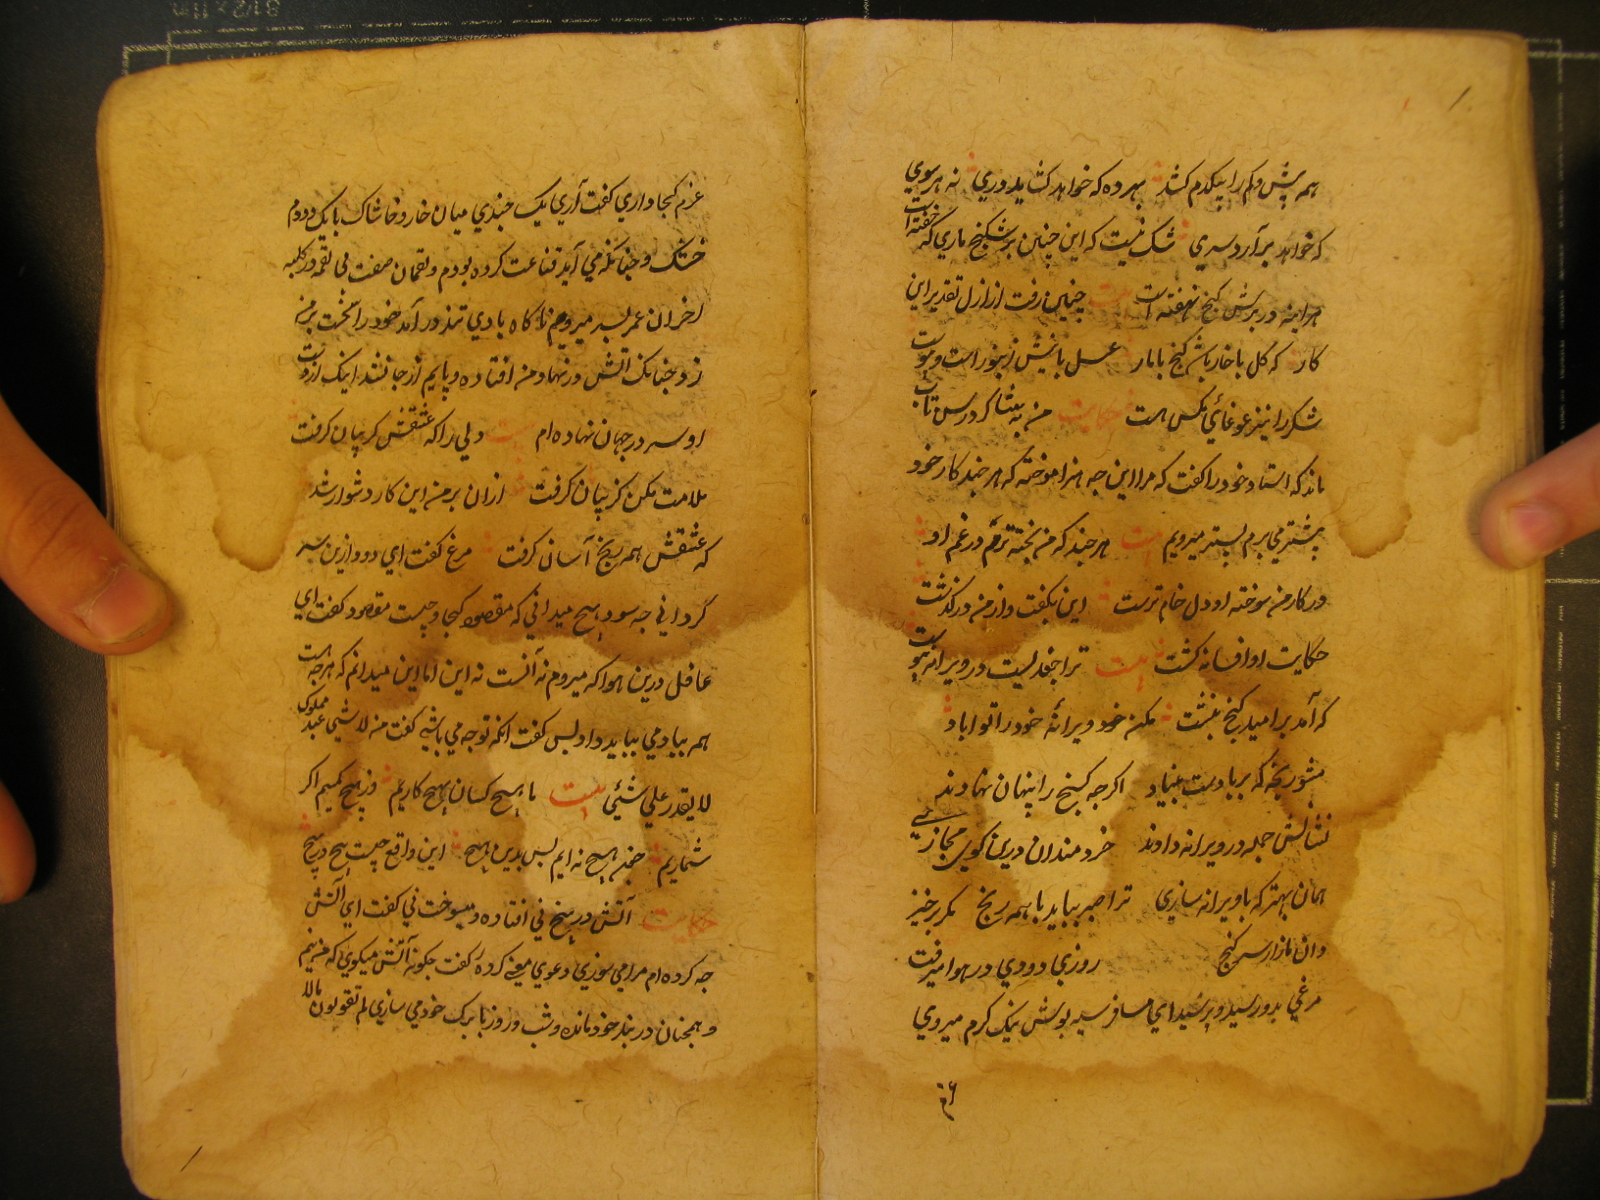 همه پش وکم را بیکدم کشد بهر ده که خواهد کشاید دری نه هر سوی
که خواهد بر آرد سری شک نیست که این چنین بر شکنج ماری که خفته است
هر اینه در برش گنج نهفته است بیت چنین رفت از ازل تقدیر این
کار که گل با خار باش گنج با مار عسل با نیش زنبور است و پیوست
شکر را نیز غوغائی مکس هست حکایت من به بیتا کر درس تاب
ماند که استاد خود را گفت که مرا این چه هنر اموخته که هر چند کار خود
پیشتر می برم پستر میرویم بیت هر چند که من پخته ترم در غم او
در کار من سوخته او دل خام ترست این بگفت و از من در گذشت
حکایت او افسانه گشت بیت ترا جغدیست در ویرانه پیوست
که آمد بر امید گنج بنشست مکن خود ویرانهٔ خود را تو اباد
مشو رنجه که بر بادست بنیاد اگرچه گنج را پنهان نهادند
نشانش جمله در ویرانه دادند خردمندان درین کوی مجازی
همان بهتر که با ویرانه سازی ترا صبر بباید با همه رنج مکر برخیز
و ان مازار سر گنج روزی دودی در هوا میرفت
مرغی بدو رسید و پرسید ای مسافر سیه پوش نیک گرم میروی
عزم کجا داری گفت آری یک چندی میان خار و خاشاک با یک دو دم
خشک و چنانکه می آید قناعت کرده بودم و لقمان صفت بی لقمه در کلبه
احزان عمر بسر میرویم ناکاه بادی تند در آمد خود را سخت بر من
زد چنانک اتش در نهاد من افتاده و پایم از جا نشد اینک از دست
او سر در جهان نهاده ام بیت دلی را که عشقش گریبان گرفت
ملامت مکن گر بیابان گرفت ازان بر من این کار دشوار شد
که عشقش همه رنج آسان گرفت مرغ گفت ای دود ازین سر
گردانی چه سود هیچ میدانی که مقصود کجا و چیست مقصود گفت ای
عاقل درین هوا که میروم نه آنست نه این اما این میدانم که هرچه هست
همه بباد می بباید داد پس گفت انکه تو چه می باشی گفت من لا شئی عبد مملوک
لا یقدر علی شئی بیت ما هیچ کسان هیچ کاریم وز هیچ کمیم اگر
شماریم چندین هیچ نه ایم پس بدین هیچ این واقع چیست هیچ در هیچ
حکایت آتش در بیخ نی افتاده و میسوخت نی گفت ای آتش
چه کرده ام مرا می سوزی دعوی معنی کرده گفت چگونه آتش میگوی که من نیم
و همچنان در بند خود مانده و شب و روز با برگ خود می سازی لم تقولون مالا